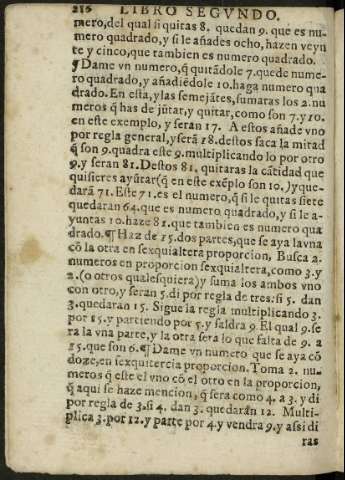 216 LIBRO SEGVNDO.
mero,del qual si quitas 8. quedan 9. que es nu-
mero quadrado, y si le añades ocho, hazen veyn
te y cinco,que tambien es numero quadrado.
¶ Dame vn numero,q̃ quitãdole 7.quede nume-
ro quadrado,y añadiẽdole 10.haga numero qua
drado.En esta,y las semejãtes,sumaras los 2.nu
meros q̃ has de jũtar,y quitar,como son 7.y 10.
en este exemplo, y seran 17. A estos añade vno
por regla general,y serã 18.destos saca la mitad
q̃ son 9.quadra este 9.multiplicando lo por otro
9.y seran 81.Destos 81. quitaras la cãtidad que
quisieres ayũtar(q̃ en este exẽplo son 10.)y que-
darã 71.Este 71.es el numero,q̃ si le quitas siete
quedaran 64.que es numero quadrado,y si le a-
yuntas 10.haze 81.que tambien es numero qua
drado.¶ Haz de 15.dos partes,que se aya la vna
cõ la otra en sexquialtera proporcion, Busca 2.
numeros en proporcion sexquialtera,como 3.y
2.(o otros qualesquiera)y suma los ambos vno
con otro,y seran 5.di por regla de tres:si 5. dan
3.quedaran 15. Sigue la regla multiplicando 3.
por 15.y partiendo por 5.y saldra 9. El qual 9.se
ra la vna parte,y la otra sera lo que falta de 9. a
15.que son 6.¶ Dame vn numero que se aya cõ
doze,en sexquitercia proporcion.Toma 2. nu-
meros q̃ este el vno cõ el otro en la proporcion,
q̃ aqui se haze mencion, q̃ sera como 4.a 3.y di
por regla de 3.si 4. dan 3. quedarãn 12. Multi-
plica 3.por 12.y parte por 4.y vendra 9.y assi di
ras